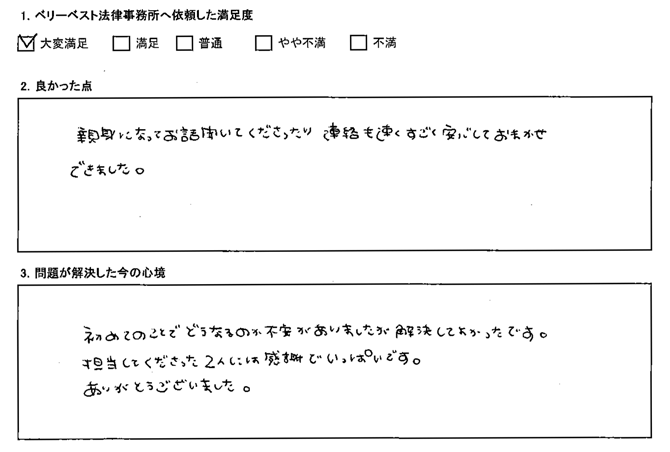 1. ベリーベスト法律事務所へ依頼した満足度
☑ 大変満足 □ 満足 □ 普通 □ やや不満 □ 不満
2. 良かった点
親身になってお話聞いてくださったり 連絡も速くすごく安心しておまかせ
できました。
3. 問題が解決した今の心境
初めてのことでどうなるのか不安がありましたが解決してよかったです。
担当してくださった2人には感謝でいっぱいです。
ありがとうございました。